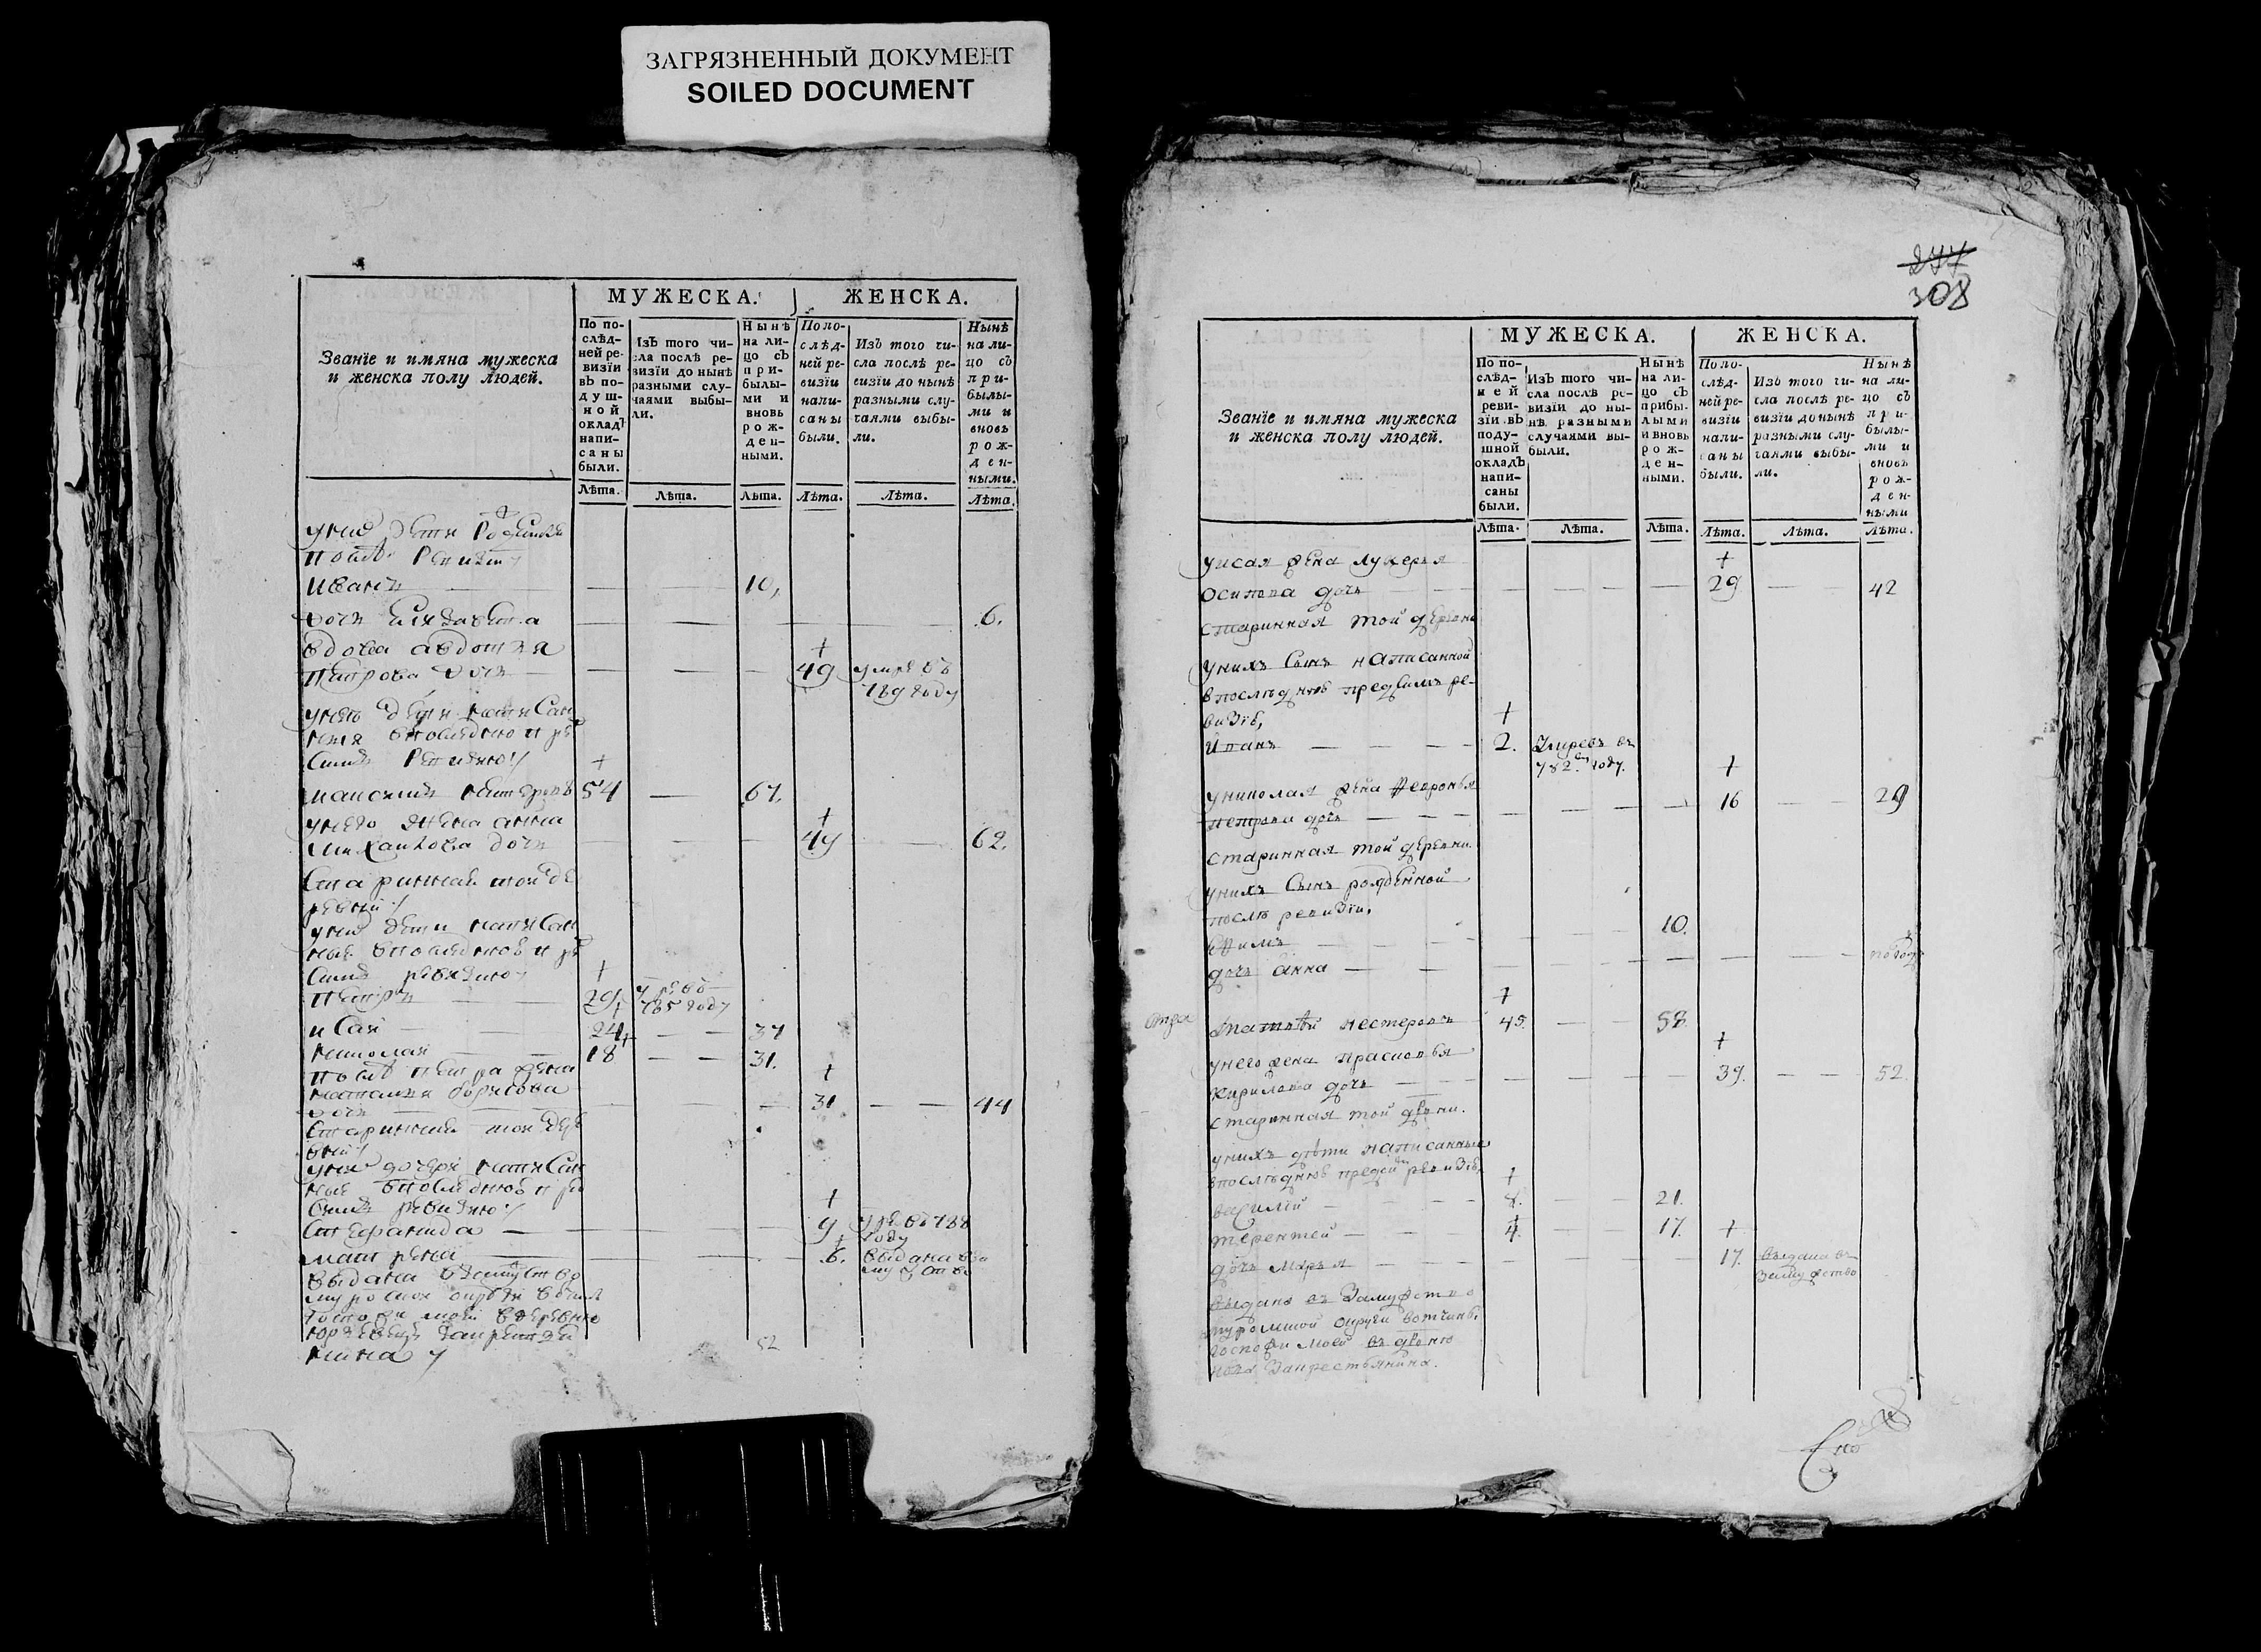 ЗАГРЯЗНЕННЫЙ ДОКУМЕНТ
SOILED DOCUMENT
МУЖЕСКА. ЖЕНСКА.
Званїе и имяна мужеска
и женска полу людей.
По по-
слѣд-
ней ре-
визїи
въ по-
душ-
ной
окладъ
напи-
саны
были.
Изъ того чи-
сла послѣ ре-
визїи до нынѣ
разными слу-
чаями выбы-
ли.
Нынѣ
на ли-
цо съ
при-
былы-
ми и
вновь
рож-
ден-
ными.
По по-
слѣд-
ней ре-
визїи
напи-
саны
были.
Изъ того чи-
сла послѣ ре-
визїи до нынѣ
разными слу-
чаями выбы-
ли.
Нынѣ
на ли-
цо съ
при-
былы-
ми и
вновь
рож-
ден-
ными.
Лѣта. Лѣта. Лѣта. Лѣта. Лѣта. Лѣта.
уних дети
после ревизии
Иванъ 10,
дочь Елизавета 6.
вдова авдотья
петрова дочь 49 умре въ
789 году
уней дети написан
ныя впоследнюю пре
Сими Ревизию
54 67.
унего жена анна
михаилова дочь 49 62.
Старинная той де
ревни
уних дети написан
ные впоследнюю пре
Сими ревизию
петръ 29 785 году
исай 24 37
николай 18 31.
после петра жена
наталья борисова
дочь 31 44
Старинная той дер
вни
уних дочери написан
ные впоследнюю пре
Сими ревизию
Степанида 9 788
году
матрена 6. выдана
выдана взамужство
кина
52
277
308
МУЖЕСКА. ЖЕНСКА.
Званїе и имяна мужеска
и женска полу людей.
По по-
слѣд-
ней
реви-
зїи въ
поду-
шной
окладъ
напи-
саны
были.
Изъ того чи-
сла послѣ ре-
визїи до ны-
нѣ разными
случаями вы-
были.
Нынѣ
на ли-
цо съ
прибы-
лыми
и вновь
рож-
ден-
ными.
По по-
слѣд-
ней ре-
визїи
напи-
саны
были.
Изъ того чи-
сла послѣ ре-
визїи до нынѣ
разными слу-
чаями выбы-
ли.
Нынѣ
на ли-
цо съ
при-
былы-
ми и
вновь
рож-
ден-
ными
Лѣта. Лѣта. Лѣта. Лѣта. Лѣта. Лѣта.
уисая жена лукерья
осипова дочь 29 42
старинная той деревни
унихъ сынъ написанной
впослѣднюю предсимъ ре-
визїю,
Иванъ 2. Умревъ въ
782м году.
униколая жена февронья
петрова дочь 16 29
старинная той деревни.
унихъ сынъ рожденной
послѣ ревизїи,
Ефимъ 10.
дочь анна
Игнатей нестеровъ 45. 58.
унего жена прасковья
кирилова дочь 39. 52.
старинная той деревни.
унихъ дѣти написанные
впослѣднюю предсим ревизїю,
василей 8. 21.
терентей 4. 17.
дочь марья 17. выдана въ
замужство
выдана въ замужство
муромской округи вотчины
госпожи моей въ деревню
за крестьянина.